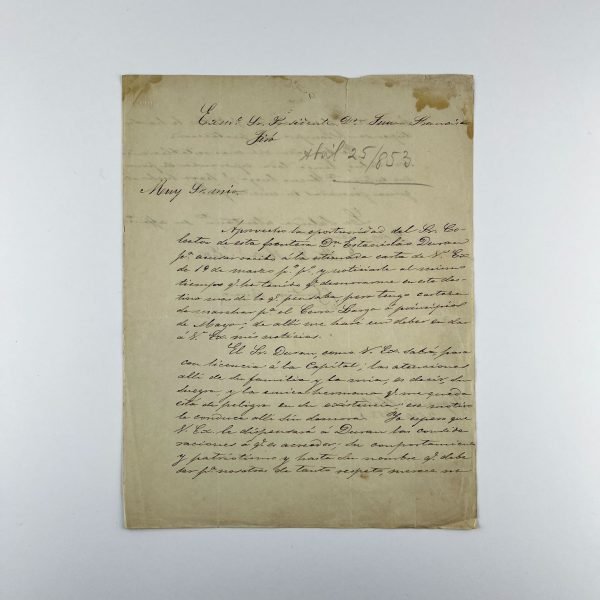 Exmº Sr. Presidente Dn. Juan Francisco
Giró
Abril 25/853
Muy Sr. mio
Aprovecho la oportunidad del Sr. Co-
lector de esta frontera Dn. Estanislao Duran
pª acusar recibo a la estimada carta de V. Ex.
de 1º de marzo pº pº, y noticiarle al mismo
tiempo qe. he tenido qe. demorarme en este des-
tino mas de lo qe. pensaba, pero tengo
marchar pª el Cerro Largo á principios
de Mayo; de alli me haré un deber en dar
á V. Ex. mis noticias.
El Sr. Duran, como V. Ex. sabrá, pasa
con licencia á la Capital, las atenciones
alli de su familia y la mia, es decir, su
suegra y la unica hermana qe. me queda
está de peligro en su existencia es motivo
le conduce alli sin demora. Yo espero que
V. Ex. le dispensará á Duran las conside-
raciones á qe. es acreedor; su comportamiento
y patriotismo y hasta su nombre qe. debe
ser pª nosotros de tanto respeto, merece